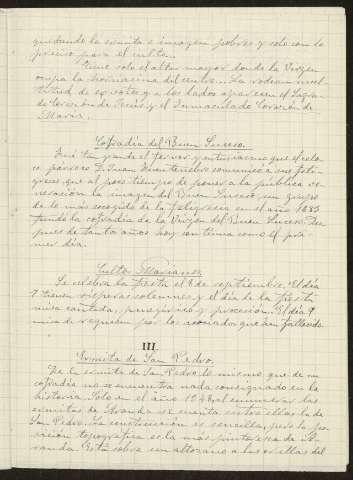 quedando la ermita e imagen pobres y solo con lo
preciso para el culto.
Tiene solo el altar mayor donde la Virgen
ocupa la hornacina del centro. La rodean mul-
titud de exvotos y a los lados aparecen el Sagra-
do Corazón de Jesús y el Inmaculado Corazón de
María.
Cofradía del Buen Suceso.
Fué tan grande el fervor y entusiasmo que el celo-
so párroco D. Juan comunicó a sus feli-
greses que al poco tiempo de poner a la pública ve-
neración la imagen del Buen Suceso, un grupo
de lo más escogido de la feligresía en el año 1885
fundó la cofradía de la Virgen del Buen Suceso. Des-
pues de tanto años hoy continua como el pri-
mer día.
Cultos Marianos.
Se celebra la fiesta el 8 de septiembre. El día
7 tienen vísperas solemnes y el día de la fiesta
misa cantada, panegírico y procesión. El día 9
misa de requiem por los asociados que han fallecido.
III
Ermita de San Pedro.
De la ermita de San Pedro lo mismo que de su
cofradía no se encuentra nada consignado en la
historia. Solo en el año 1248 al enumerar las
ermitas de Aranda se cuenta entre ellas la de
San Pedro. La construcción es sencilla, pero la po-
sición topográfica es la más pintoresca de A-
randa. Está sobre un altozano a las orillas del